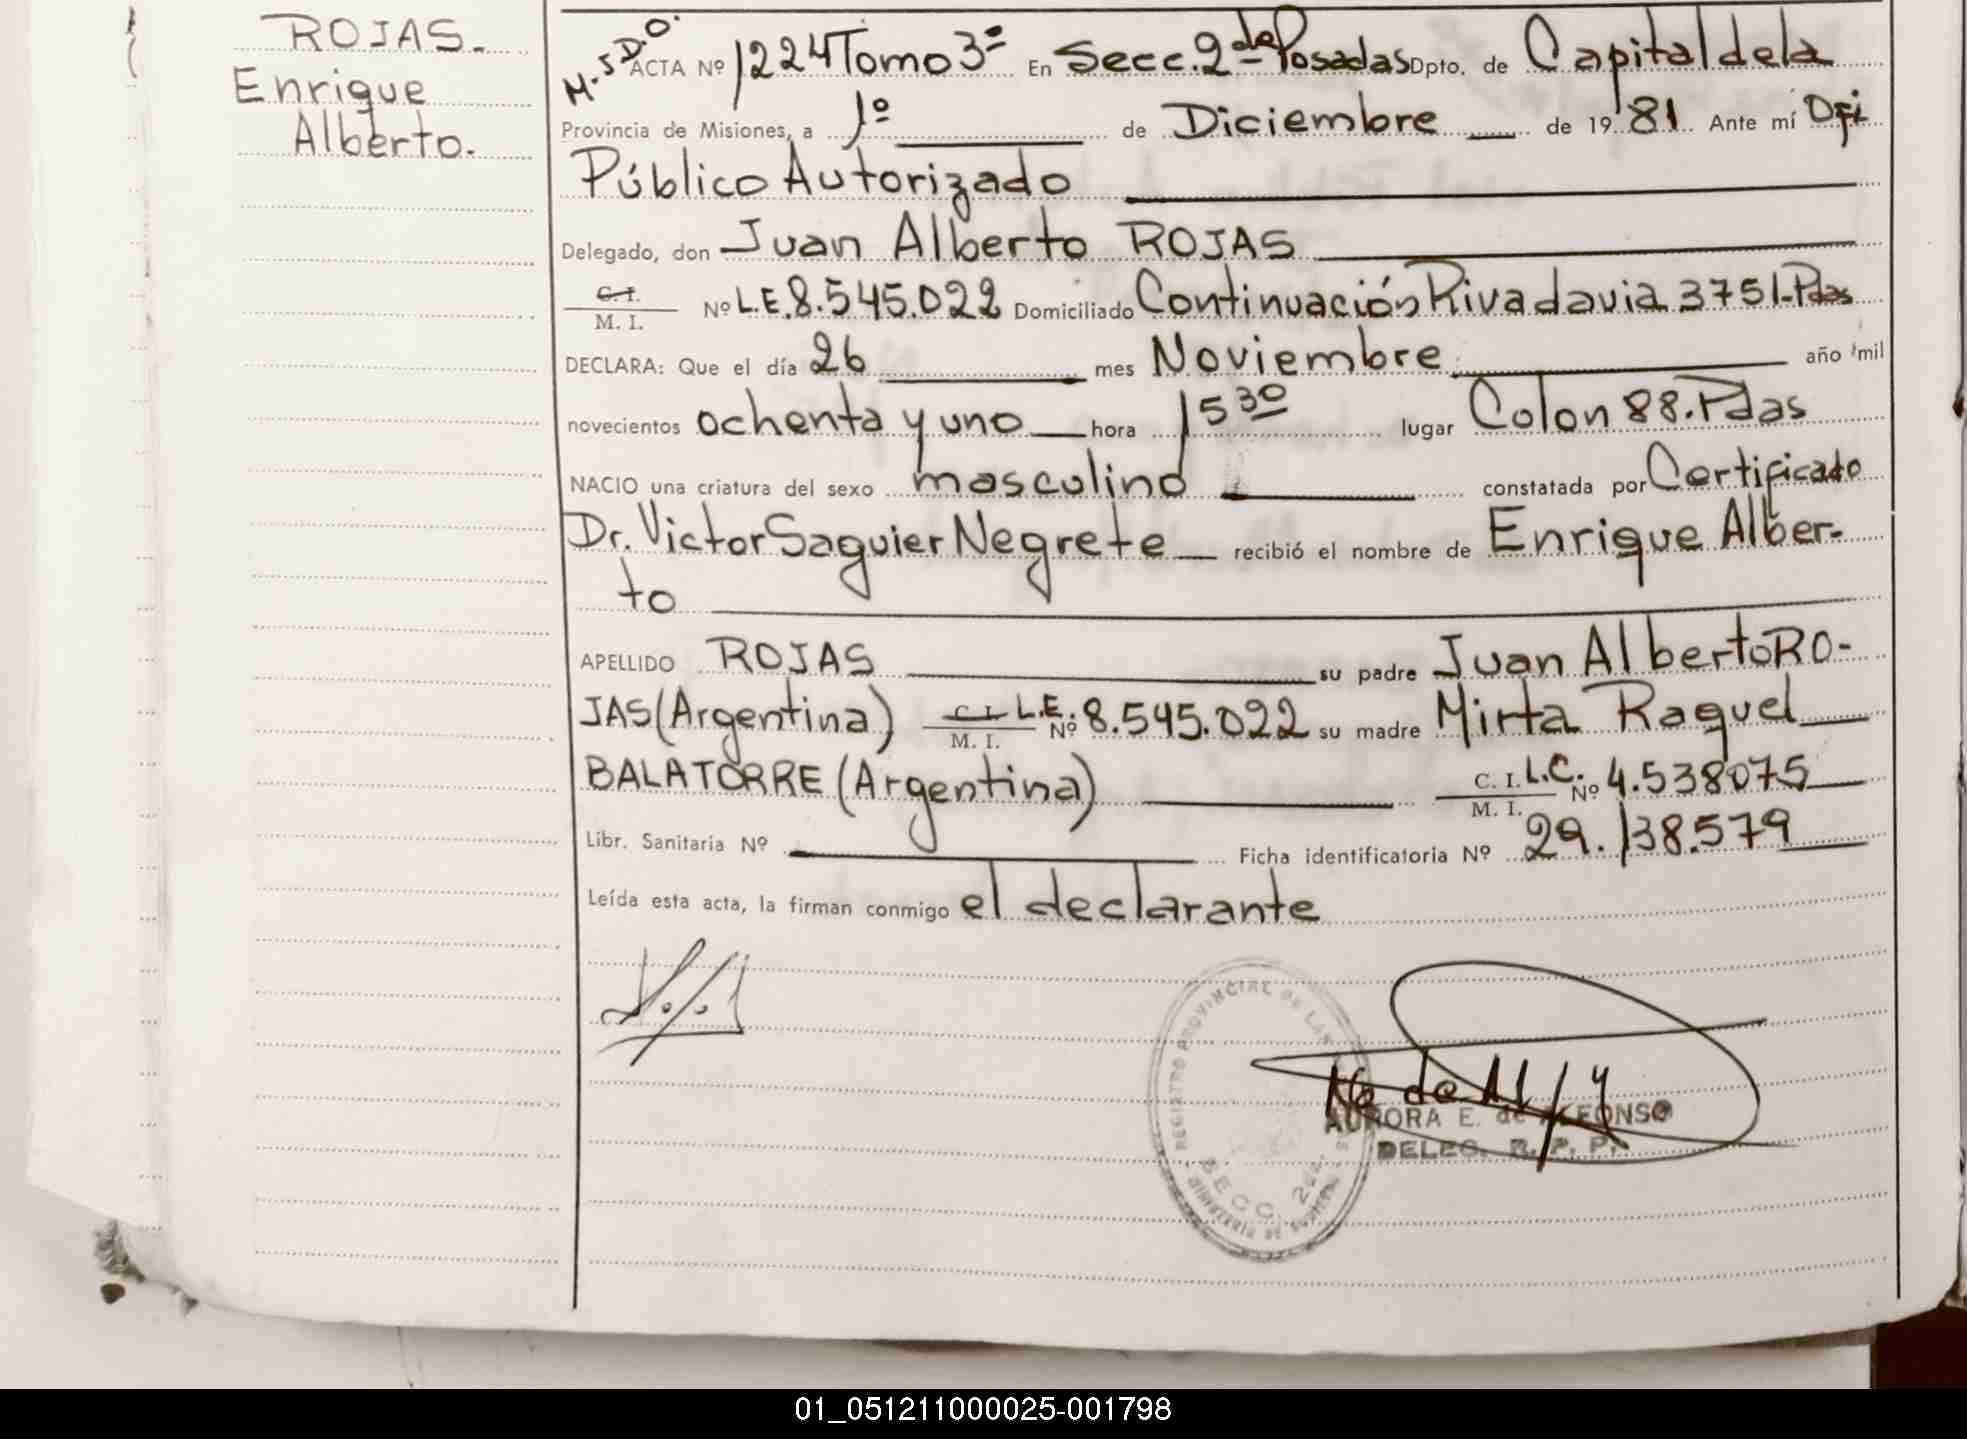 ROJAS.
Enrique
Alberto.
M.S.D.O.
ACTA Nº 1224 Tomo 3º En Secc. 2da Posadas Dpto. de Capital de la
Provincia de Misiones, a 1º de Diciembre de 1981 Ante mí Ofi
Público Autorizado
Delegado, don Juan Alberto ROJAS
C. I.
M. I. Nº L.E. 8.545.022 Domiciliado Continuación Rivadavia 3751-Pdas
DECLARA: Que el día 26 mes Noviembre año mil
novecientos ochenta y uno hora 15 30 lugar Colon 88. Pdas
NACIO una criatura del sexo masculino constatada por Certificado
Dr. Victor Saguier Negrete recibió el nombre de Enrique Alber-
to
APELLIDO ROJAS su padre Juan Alberto RO-
JAS (Argentina) C. I. M. I. L.E. Nº 8.545.022 su madre Mirta Raquel
BALATORRE (Argentina) C. I. M. I. L.C. Nº 4.538075
Libr. Sanitaria Nº Ficha identificatoria Nº 29.138.579
Leída esta acta, la firman conmigo el declarante
REGISTRO PROVINCIAL DE LAS
SECC. 2da.
AURORA E. de ALFONSO
DELEG. R. P. P.
01_051211000025-001798